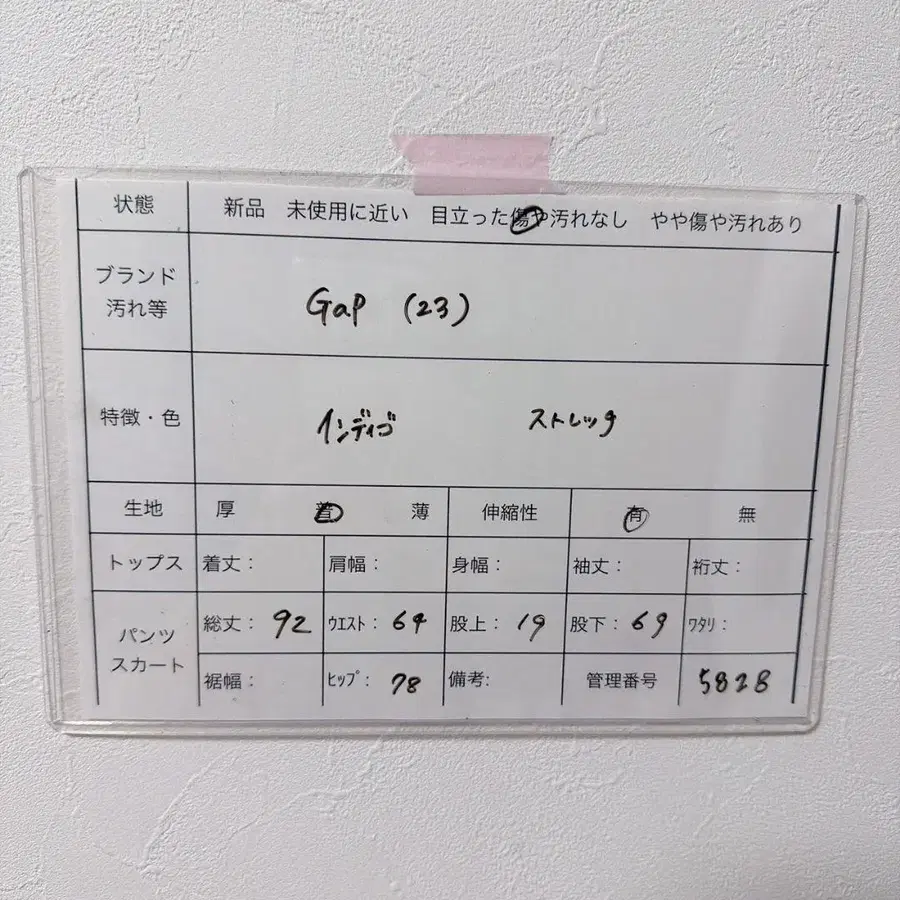 状態 新品 未使用に近い 目立った傷や汚れなし やや傷や汚れあり
ブランド
汚れ等
Gap (23)
特徴・色 インディゴ ストレッチ
生地 厚 普 薄 伸縮性 有 無
トップス 着丈: 肩幅: 身幅: 袖丈: 裄丈:
パンツ
スカート
総丈: 92 ウエスト: 64 股上: 19 股下: 69 ワタリ:
裾幅: ヒップ: 78 備考: 管理番号 5828